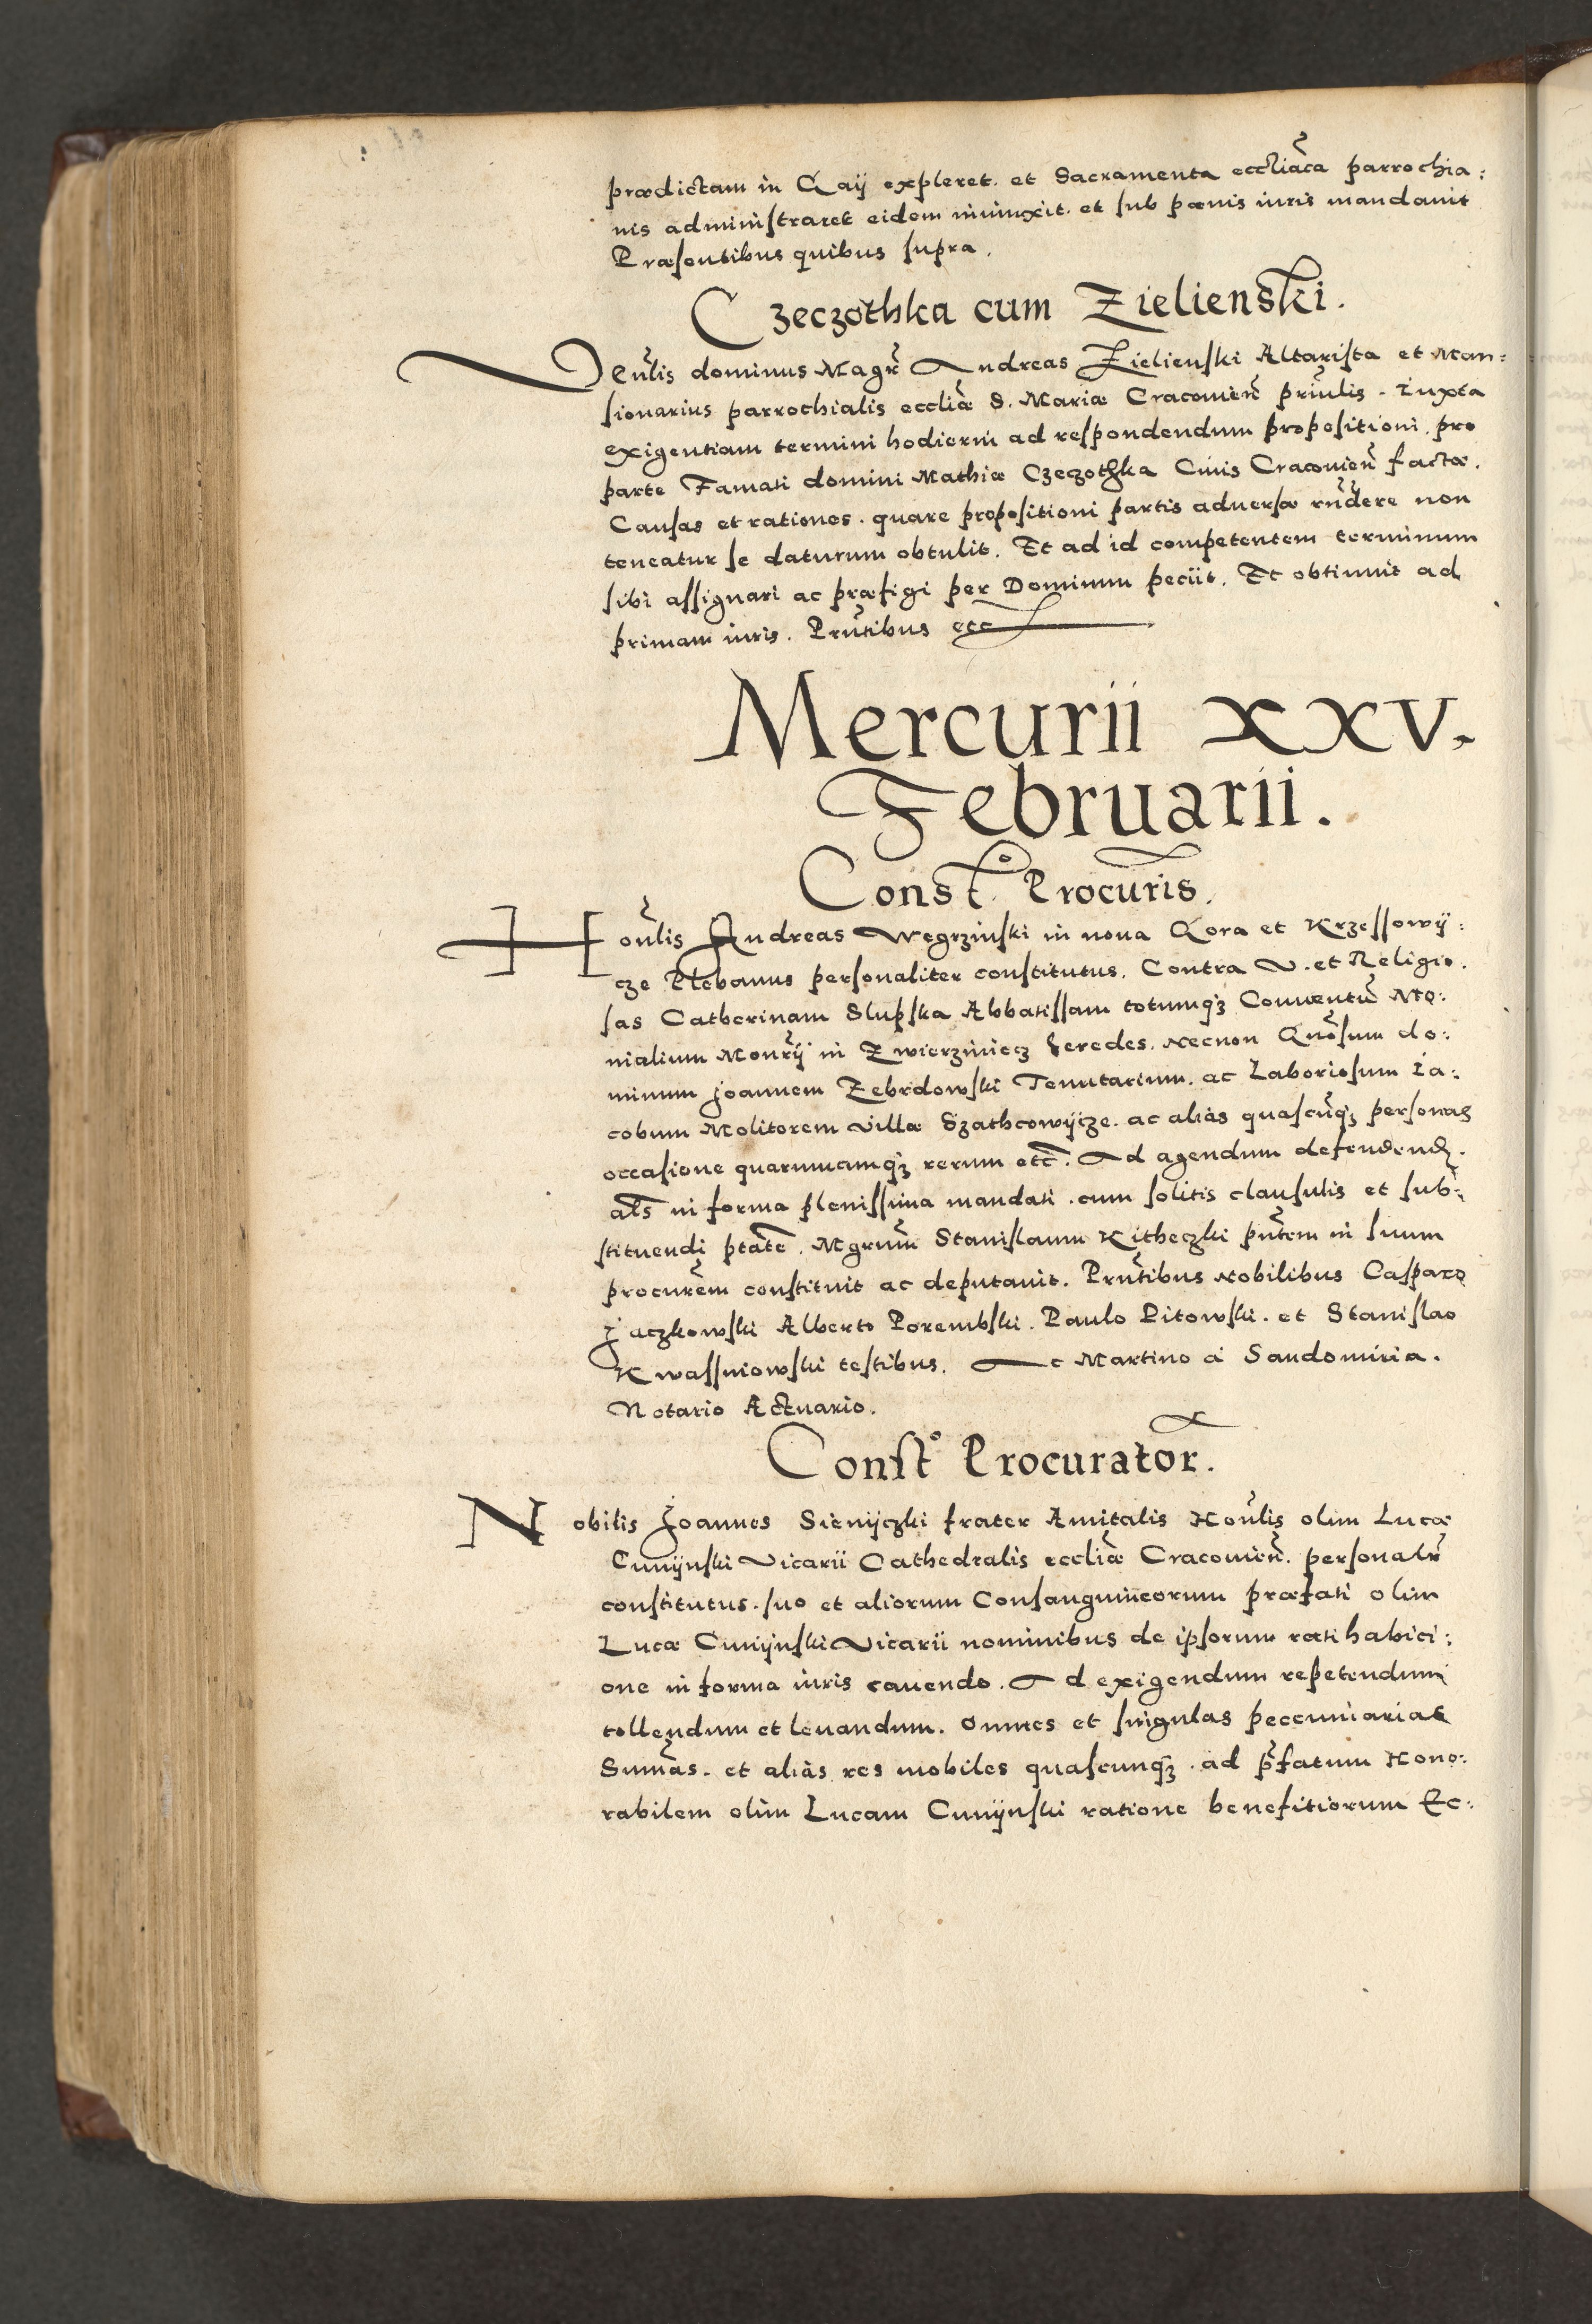 prædictam in Gaij expleret. et Sacramenta eccl̃iãca parrochia:
nis administraret eidem iniunxit. et sub pœnis iuris mandauit
Præsentibus quibus supra.
Czeczothka cum Zielienski.
Veñlis dominus Magr̃ Andreas Zielienski Altarista et Man:
sionarius parrochialis eccliæ S. Mariæ Cracouieñ priñlis. Iuxta
exigentiam termini hodierni ad respondendum propositioni. pro
parte Famati domini Mathiæ Czeczothka Ciuis Cracouieñ factæ.
Causas et rationes. quare propositioni partis aduersæ rñdere non
teneatur se daturum obtulit. Et ad id competentem terminum
sibi assignari ac præfigi per Dominum peciit. Et obtinuit ad
primam iuris. Prñtibus etc
Mercurii XXV.
Februarii.
Const.º Procur̃is.
Hoñlis Andreas Wegrzinski in noua Gora et Krzessowij:
cze Plebanus personaliter constitutus. Contra V. et Religio.
sas Catherinam Slupska Abbatissam totumqȝ Conuentũ Mo:
nialium Monrij in Zwierziniecz heredes. Necnon Gñosum do:
minum Joannem Zebrdowski Tenutarium. ac Laboriosum Ia:
cobum Molitorem villæ Szathcowijcze. ac aliàs quascũqȝ personas
occasione quarumcunqȝ rerum etc̃. Ad agendum defendend.
al̃s in forma plenissima mandati. cum solitis clausulis et sub:
stituendi ptãtẽ. Mgrum̃ Stanislaum Kitheczki pñtem in suum
procur̃em constituit ac deputauit. Prñtibus Nobilibus Casparo
Jaczkowski Alberto Porembski. Paulo Pitowski. et Stanislao
Kwassniowski testibus. Ac Martino à Sandomiria.
Notario Actuario.
Const.º Procurator.
Nobilis Joannes Sienijczki frater Amitalis Hoñlis olim Lucæ
Cunijnski Vicarii Cathedralis eccliæ Cracouieñ. personalr̃
constitutus. suo et aliorum Consanguineorum præfati olim
Lucæ Cunijnski Vicarii nominibus de ipsorum rati habici:
one in forma iuris cauendo. Ad exigendum repetendum
tollendum et leuandum. Omnes et singulas peccuniarias
Sum̃as. et aliàs res mobiles quascunqȝ. ad p̃fatum Hono:
rabilem olim Lucam Cunijnski ratione benefitiorum Ec: